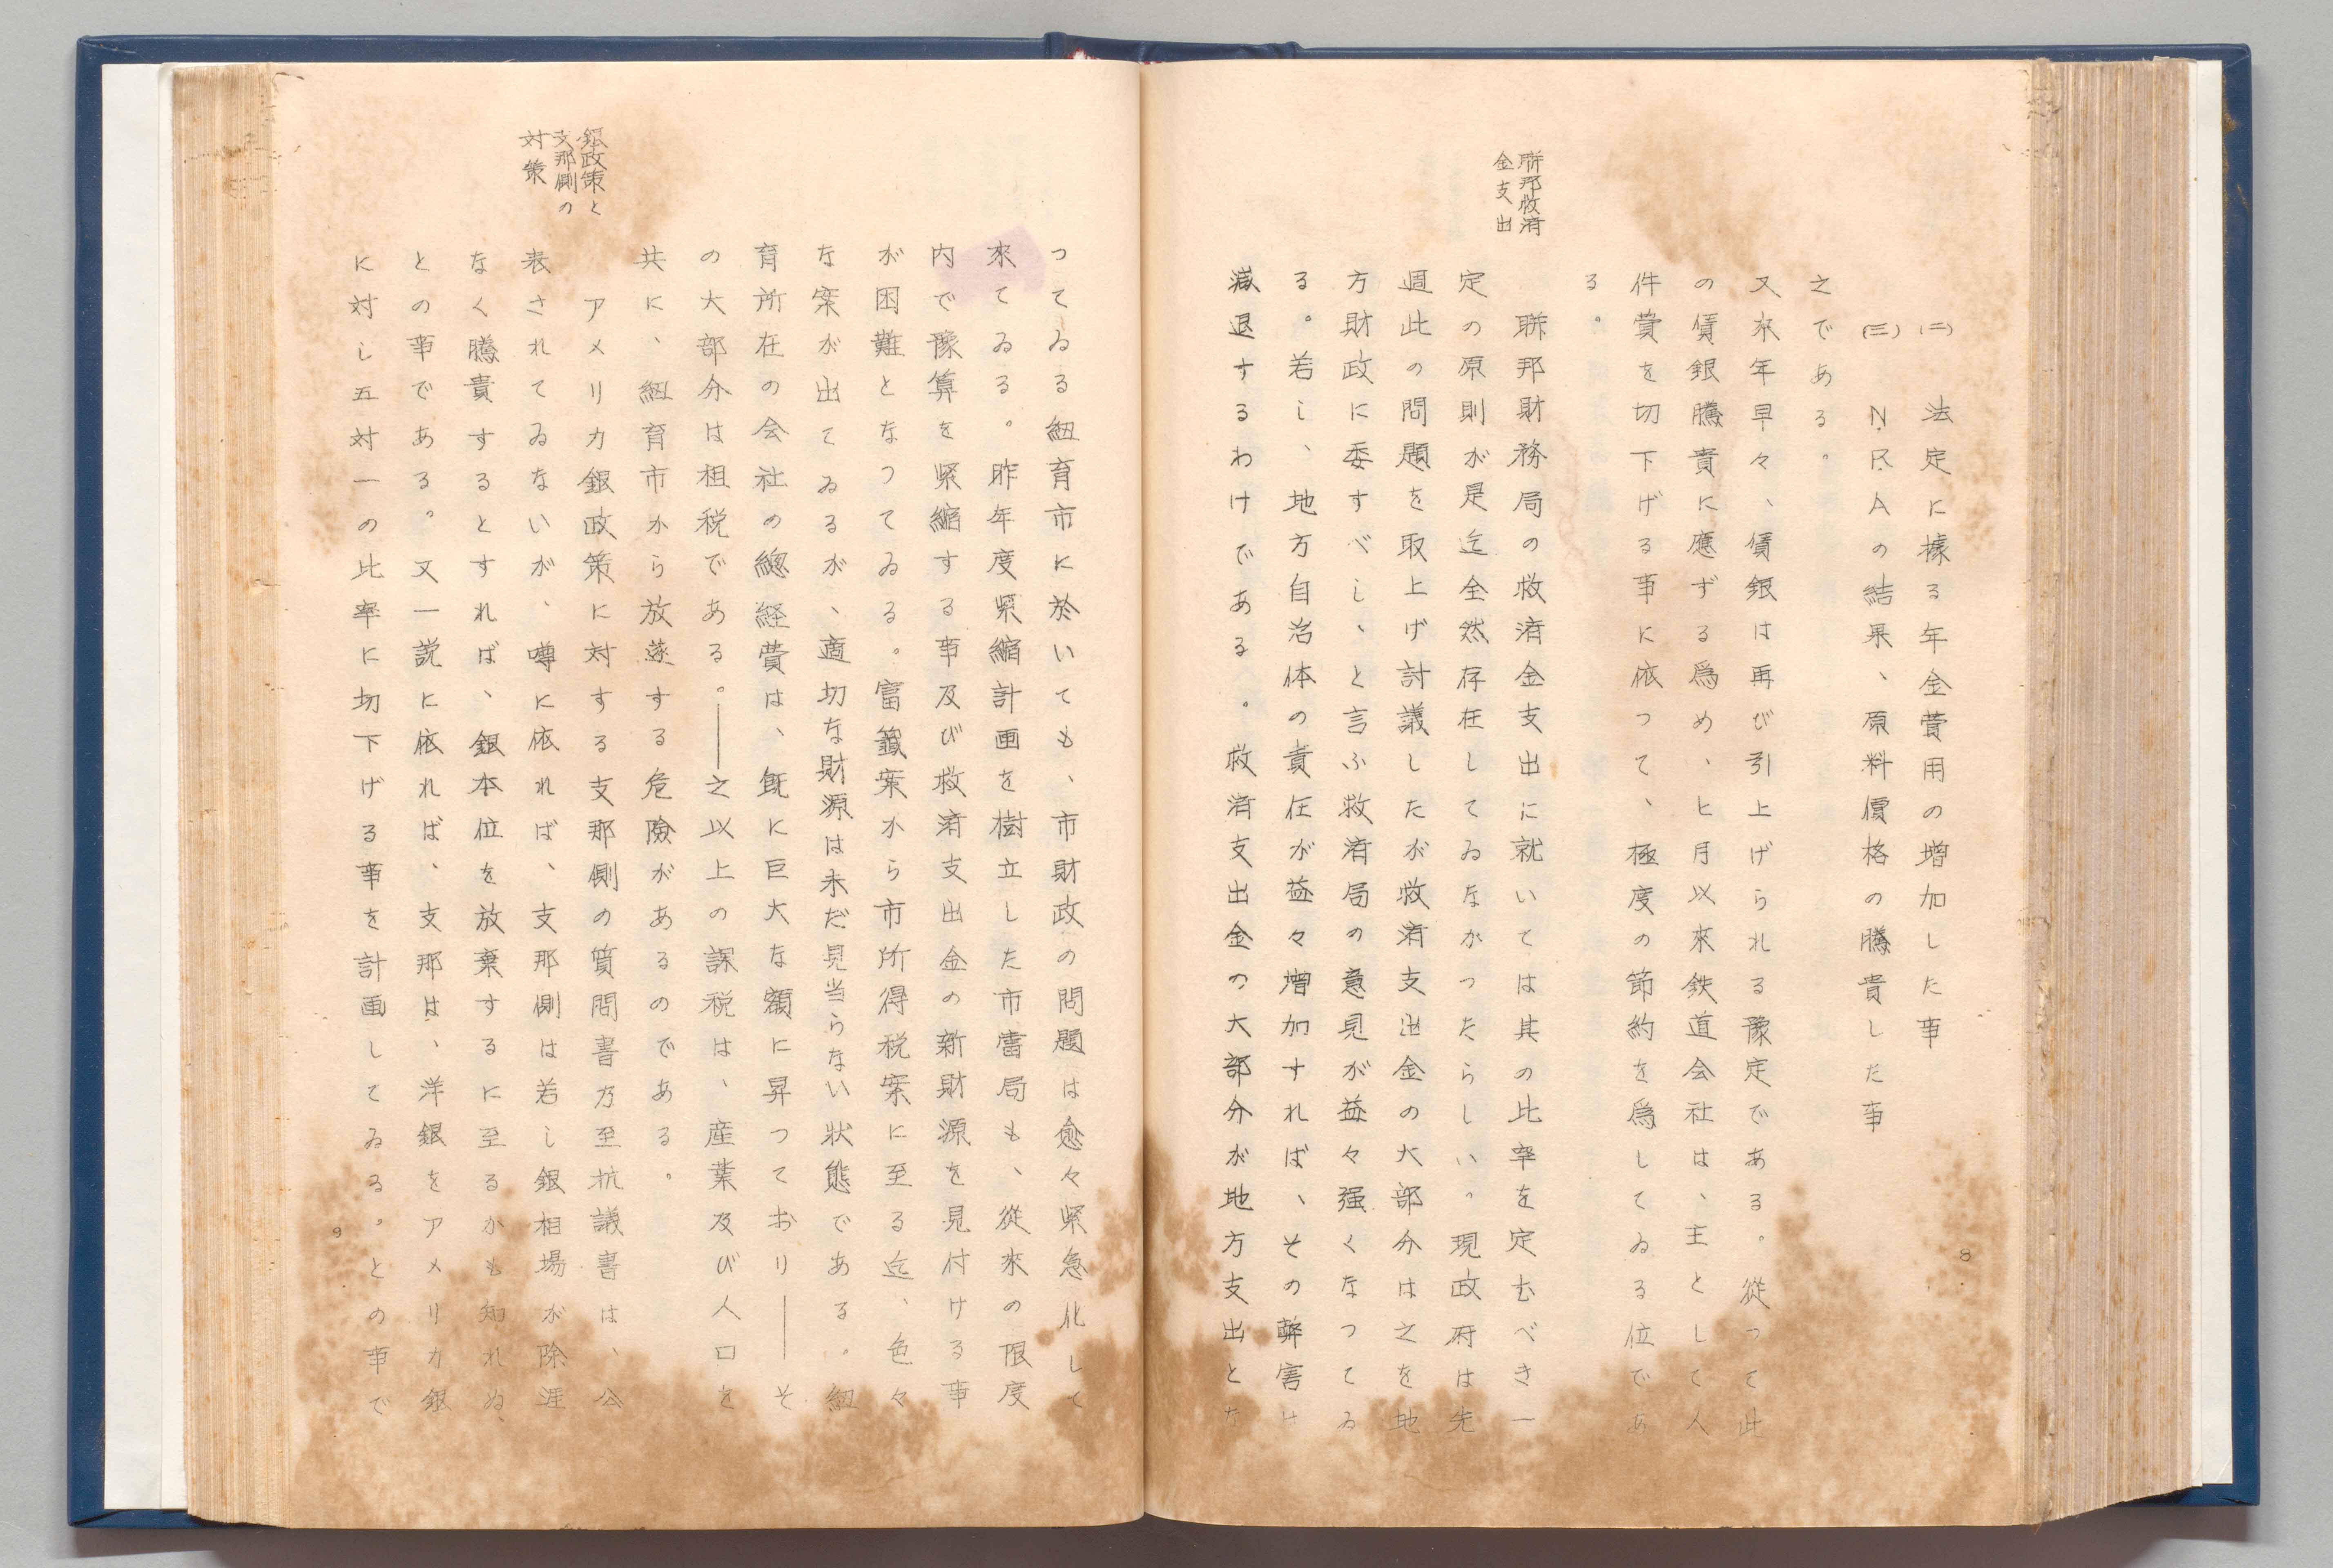 (二) 法定に據る年金費用の增加した事
(三) N.R.Aの結果、原料價格の騰貴した事
之である。
又來年早々、賃銀は再び引上げられる豫定である。從って此
の賃銀騰貴に應ずる爲め、七月以來鉄道会社は、主として人
件費を切下げる事に依つて、極度の節約を爲してゐる位であ
る。
聯邦救済
金支出
聯邦財務局の救済金支出に就いては其の比率を定むべき一
定の原則が是迄全然存在してゐなかつたらしい。現政府は先
週此の問題を取上げ討議したが救済支出金の大部分は之を地
方財政に委すべし、と言ふ救済局の意見が益々强くなつてゐ
る。若し、地方自治体の責任が益々增加すれば、その弊害は
減退するわけである。。救済支出金の大部分が地方支出とな
8
つてゐる紐育市に於いても、市財政の問題は愈々緊急化して
來てゐる。昨年度緊縮計画を樹立した市當局も、從來の限度
内で豫算を緊縮する事及び救済支出金の新財源を見付ける事
が困難となつてゐる。富籤案から市所得税案に至る迄、色々
な案が出てゐるが、適切な財源は未だ見当らない状態である。紐
育所在の会社の總経費は、既に巨大な額に昇つており——そ
の大部分は租税である。——之以上の課税は、産業及び人口を
共に、紐育市から放逐する危險があるのである。
銀政策と
支那側の
対策
アメリカ銀政策に対する支那側の質問書乃至抗議書は、公
表されてゐないが、噂に依れば、支那側は若し銀相場が除涯
なく騰貴するとすれば、銀本位を放棄するに至るかも知れぬ、
との事である。又一説に依れば、支那は、洋銀をアメリカ銀
に対し五対一の比率に切下げる事を計画してゐる。との事で
9